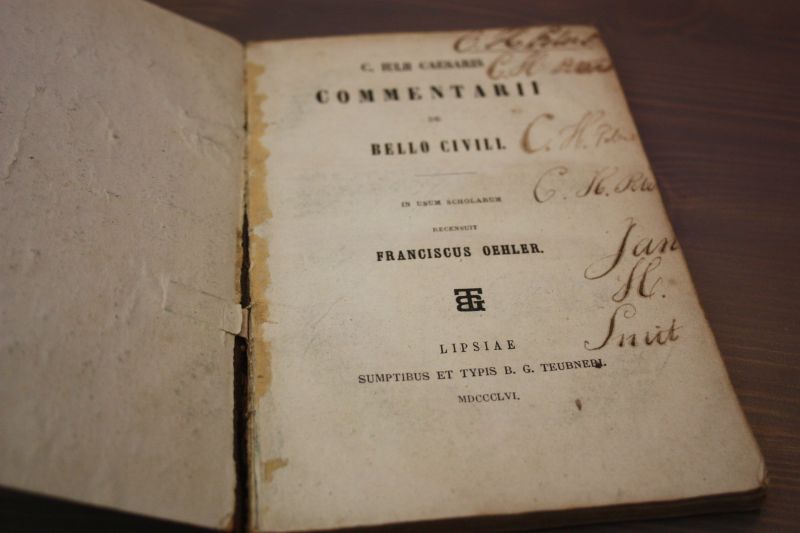 C. IULII CAESARIS
COMMENTARII
DE
BELLO CIVILI.
IN USUM SCHOLARUM
RECENSUIT
FRANCISCUS OEHLER.
BTG
LIPSIAE
SUMPTIBUS ET TYPIS B. G. TEUBNERI.
MDCCCLVI.
C. H.
C. H.
C. H.
C. H.
Jan
H.
Smit